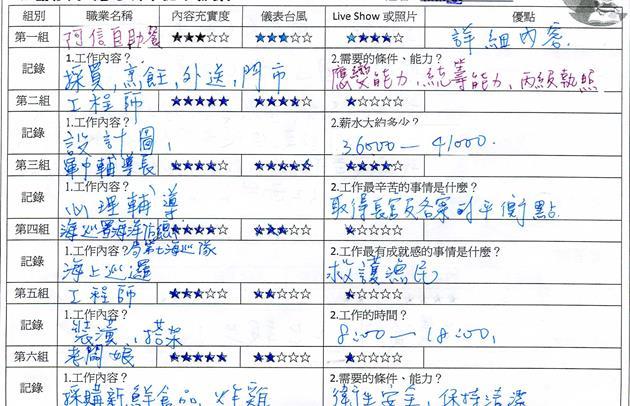 組別 職業名稱 內容充實度 儀表台風 Live Show 或照片 優點
第一組 阿信自助餐 ★★★☆☆ ★★★☆☆ ★★★★☆ 詳細內容
記錄 1.工作內容? 採買,烹飪,外送,門市 2.需要的條件、能力? 應變能力,統籌能力,丙級執照
第二組 工程師 ★★★★★ ★★★★☆ ★☆☆☆☆
記錄 1.工作內容? 設計圖, 2.薪水大約多少? 36000—41000.
第三組 軍中輔導長 ★★★★☆ ★★★★★ ★★★★☆
記錄 1.工作內容? 心理輔導 2.工作最辛苦的事情是什麼? 取得長官及各案的平衡點
第四組 ★★★★☆ ★★★☆☆ ★☆☆☆☆
記錄 1.工作內容? 海上巡邏 2.工作最有成就感的事情是什麼? 救護漁民
第五組 工程師 ★★★☆☆ ★★☆☆☆ ★☆☆☆☆
記錄 1.工作內容? 裝潢,搭架 2.工作的時間? 8:00—18:00,
第六組 老闆娘 ★★★★★ ★★☆☆☆ ★☆☆☆☆
記錄 1.工作內容? 採購新鮮食品,炸雞 2.需要的條件、能力? 衛生安全,保持清潔